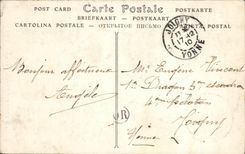 POST CARD Carte Postale POSTKARTE
BRIEFKAART POSTKAART
CARTOLINA POSTALE ОТКРЫТОЕ ПИСЬМО TARJETA POSTAL
JOIGNY
17
10
YONNE
Bonjour affectueux
Angèle
Mr Eugène Vincent
1er Dragon 5e
4e Peloton
Joigny
Yonne
OR